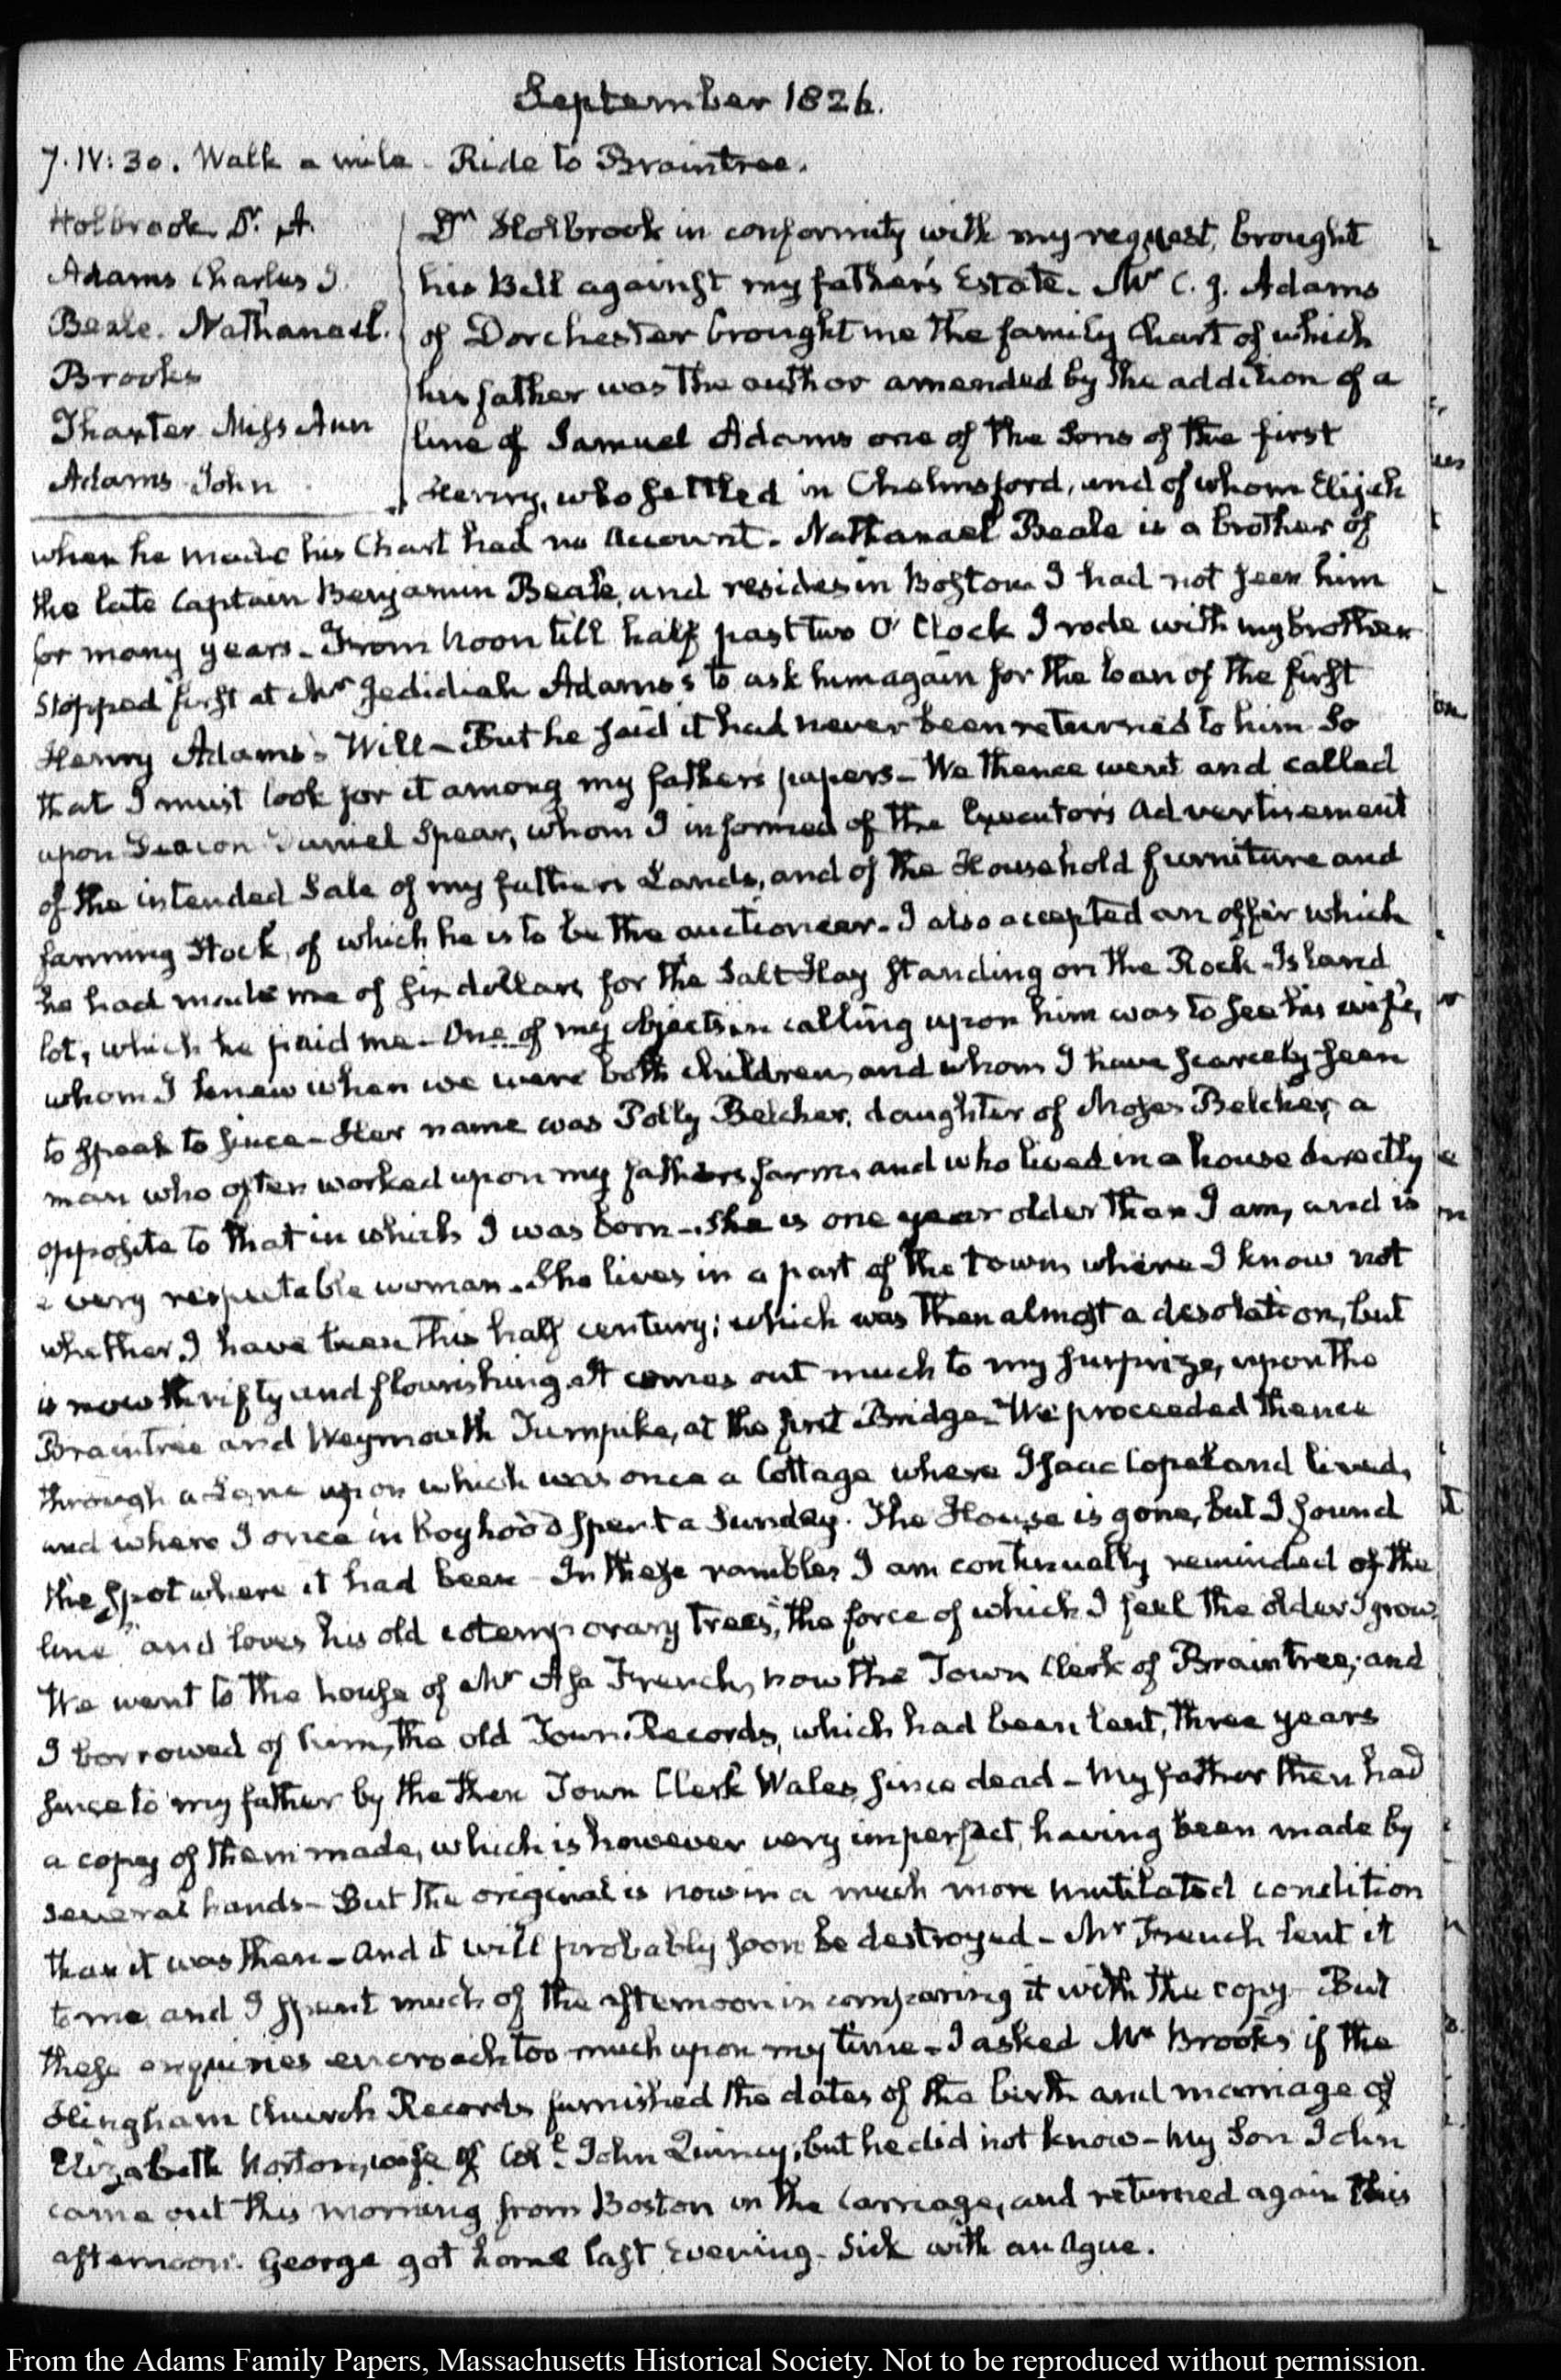 September 1826.
7. IV:30. Walk a mile - Ride to Braintree.
Holbrook Dr. A.
Adams Charles J.
Beale. Nathanael.
Brooks
Thaxter Miss Ann
Adams John
Dr Holbrook in conformity with my request, brought
his Bill against my father's Estate. Mr C. J. Adams
of Dorchester brought me the family Chart of which
his father was the author amended by the addition of a
line of Samuel Adams one of the Sons of the first
Henry, who settled in Chelmsford, and of whom Elijah
when he made his Chart had no account. Nathanael Beale is a brother of
the late Captain Benjamin Beale, and resides in Boston I had not seen him
for many years - From Noon till half past two O' Clock I rode with my brother
stopped first at Mr Jedidiah Adams's to ask him again for the loan of the first
Henry Adams's Will - But he said it had never been returned to him So
that I must look for it among my father's papers - We thence went and called
upon Deacon Daniel Spear, whom I informed of the Executor's advertisement
of the intended Sale of my father's Lands, and of the Household furniture and
farming Stock, of which he is to be the auctioneer - I also accepted an offer which
he had made me of six dollars for the Salt Hay standing on the Rock-Island
lot, which he paid me - One of my objects in calling upon him was to see his wife,
whom I knew when we were both children, and whom I have scarcely seen
to speak to since - Her name was Polly Belcher, daughter of Moses Belcher, a
man who often worked upon my father's farm, and who lived in a house directly
opposite to that in which I was born - She is one year older than I am, and is
a very respectable woman. She lives in a part of the town where I know not
whether I have been this half century; which was then almost a desolation, but
is now thrifty and flourishing. It comes out much to my surprize, upon the
Braintree and Weymouth Turnpike, at the first Bridge - We proceeded thence
through a Lane upon which was once a Cottage where Isaac Copeland lived,
and where I once in boyhood spent a Sunday. The House is gone, but I found
the spot where it had been - In these rambles I am continually reminded of the
line "and loves his old cotemporary trees", the force of which I feel the older I grow.
We went to the house of Mr Asa French, now the Town Clerk of Braintree; and
I borrowed of him, the old Town Records, which had been lent, three years
since to my father by the then Town Clerk Wales, since dead - My father then had
a copy of them made, which is however very imperfect, having been made by
several hands - But the original is now in a much more mutilated condition
than it was then - and it will probably soon be destroyed - Mr French lent it
to me, and I spent much of the afternoon in comparing it with the copy - But
these enquiries encroach too much upon my time - I asked Mr Brooks if the
Hingham Church Records furnished the dates of the birth and marriage of
Elizabeth Norton, wife of Col. John Quincy, but he did not know - My Son John
came out this morning from Boston in the Carriage, and returned again this
afternoon. George got home last Evening - Sick with an Ague.
From the Adams Family Papers, Massachusetts Historical Society. Not to be reproduced without permission.